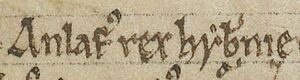 Anlaf rex hyb̄nie